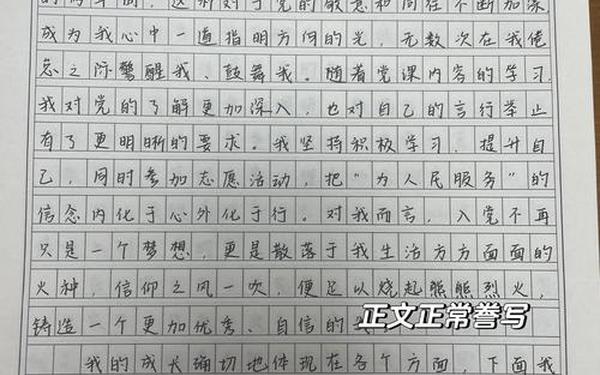 的两年间，这种对于党的敬意和向往不断加深
成为我心中一道指明方向的光，无数次在我倦
怠之际警醒我、鼓舞我。随着党课内容的学习，
我对党的了解更加深入，也对自己的言行举止
有了更明晰的要求。我坚持积极学习，提升自
己，同时参加志愿活动，把“为人民服务”的
信念内化于心外化于行。对我而言，入党不再
只是一个梦想，更是散落于我生活方方面面的
火种，信仰之风一吹，便足以烧起熊熊烈火，
铸造一个更加优秀、自信的我
正文正常誊写
我的成长确切地体现在各个方面，下面我